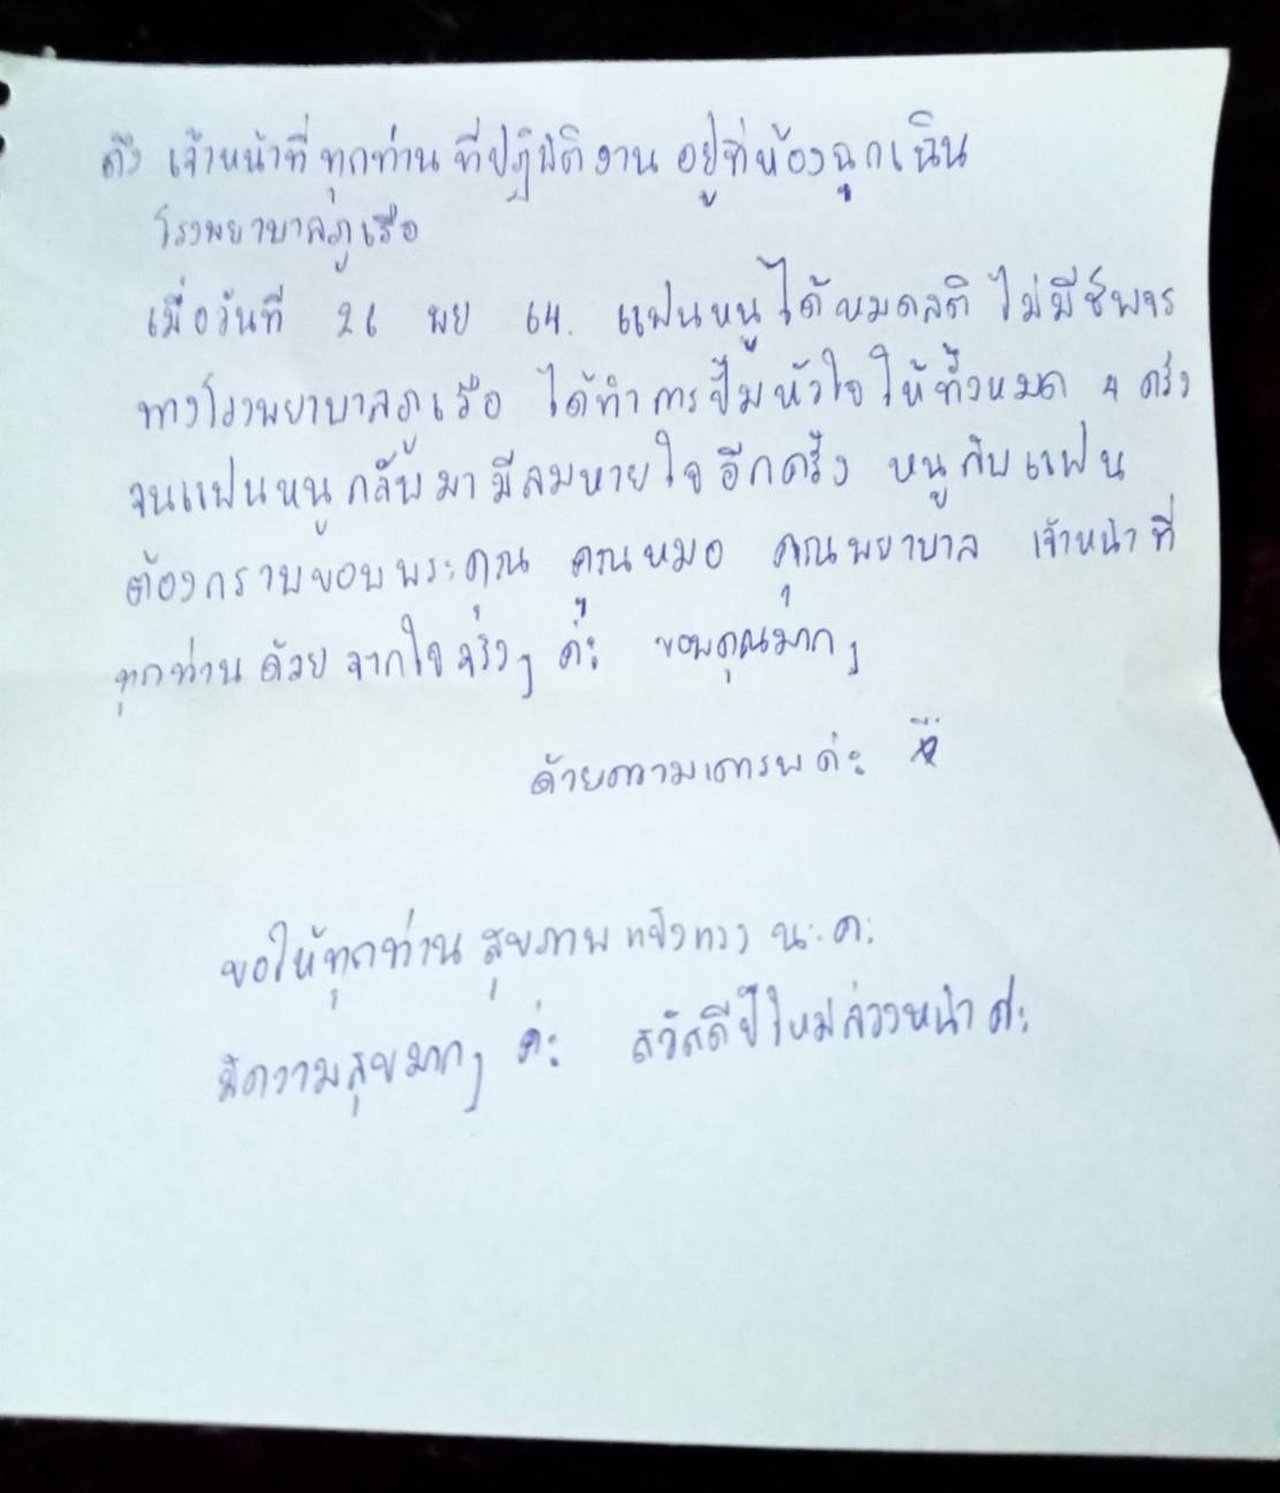 ถึง เจ้าหน้าที่ทุกท่าน ที่ปฏิบัติงาน อยู่ที่ห้องฉุกเฉิน
โรงพยาบาลภูเรือ
เมื่อวันที่ 26 พย 64. แฟนหนูได้หมดสติ ไม่มีชีพจร
ทางโรงพยาบาลภูเรือ ได้ทำการปั๊มหัวใจให้ทั้งหมด 4 ครั้ง
จนแฟนหนูกลับมามีลมหายใจอีกครั้ง หนูกับแฟน
ต้องกราบขอบพระคุณ คุณหมอ คุณพยาบาล เจ้าหน้าที่
ทุกท่านด้วย จากใจจริงๆ ค่ะ ขอบคุณมากๆ
ด้วยความเคารพค่ะ
ขอให้ทุกท่าน สุขภาพแข็งแรง นะคะ
มีความสุขมากๆ ค่ะ สวัสดีปีใหม่ล่วงหน้าค่ะ